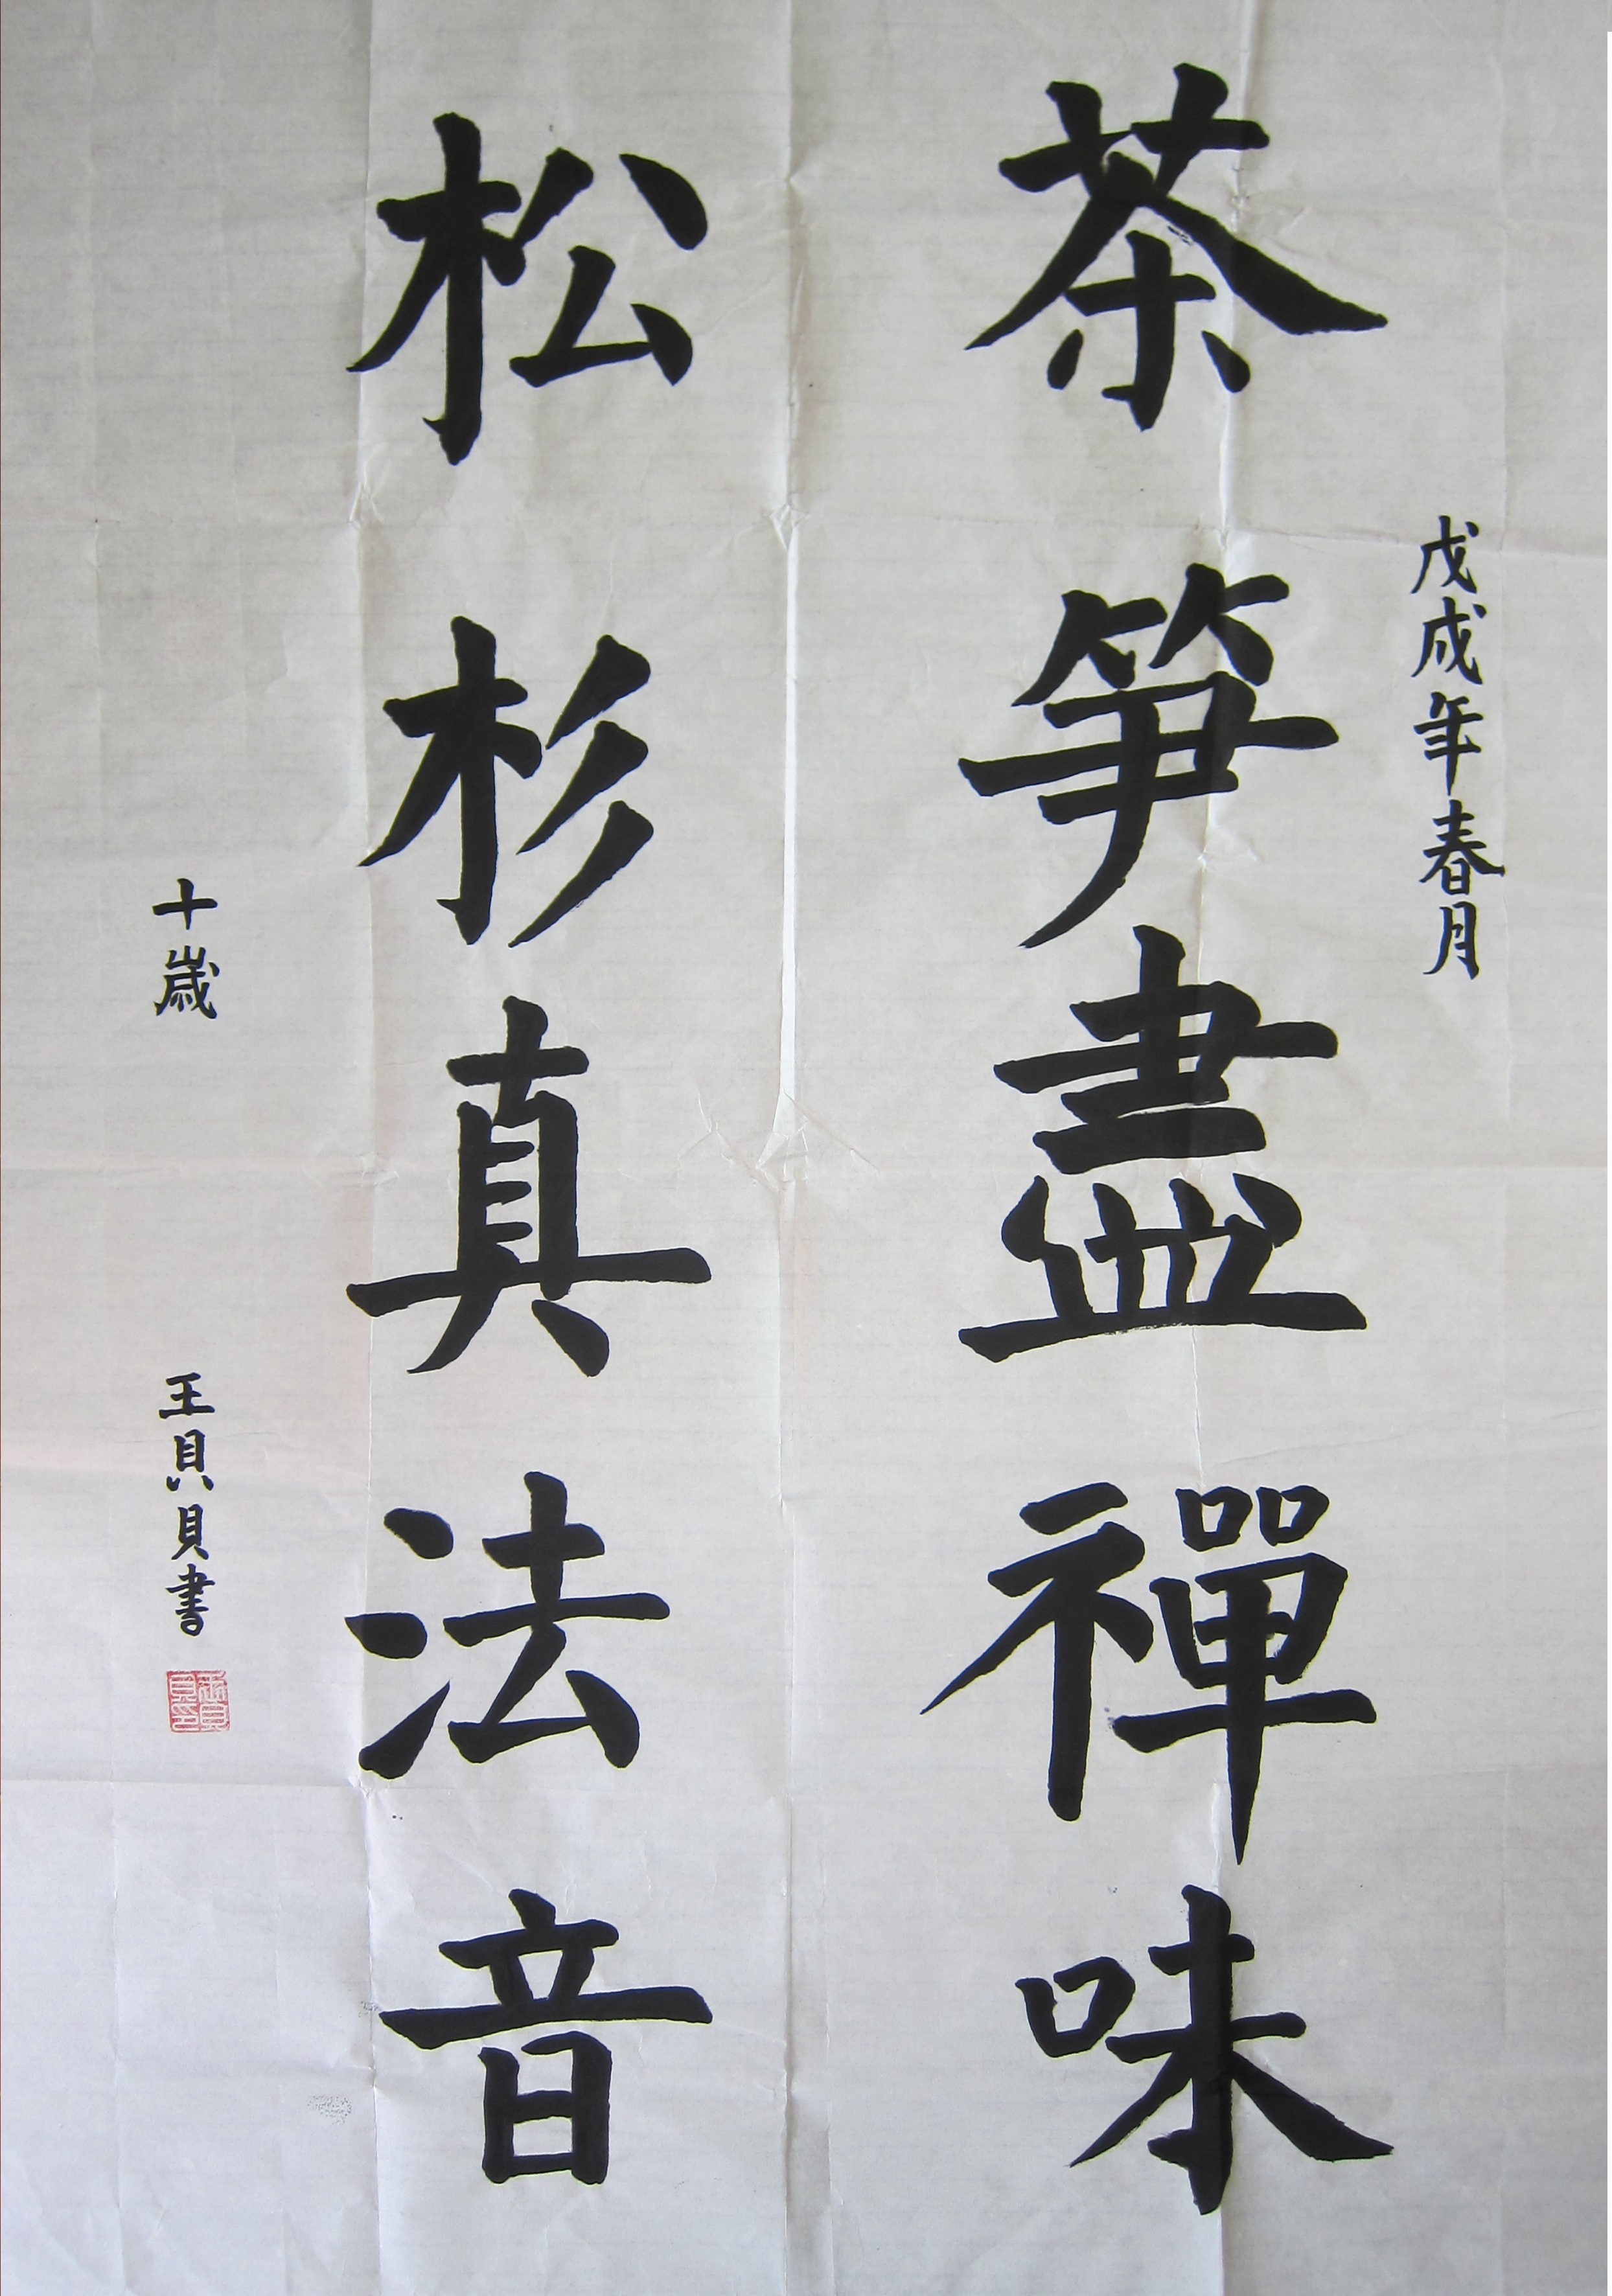 戊戌年春月
茶笋盡禪味
松杉真法音
十歲 王貝貝書